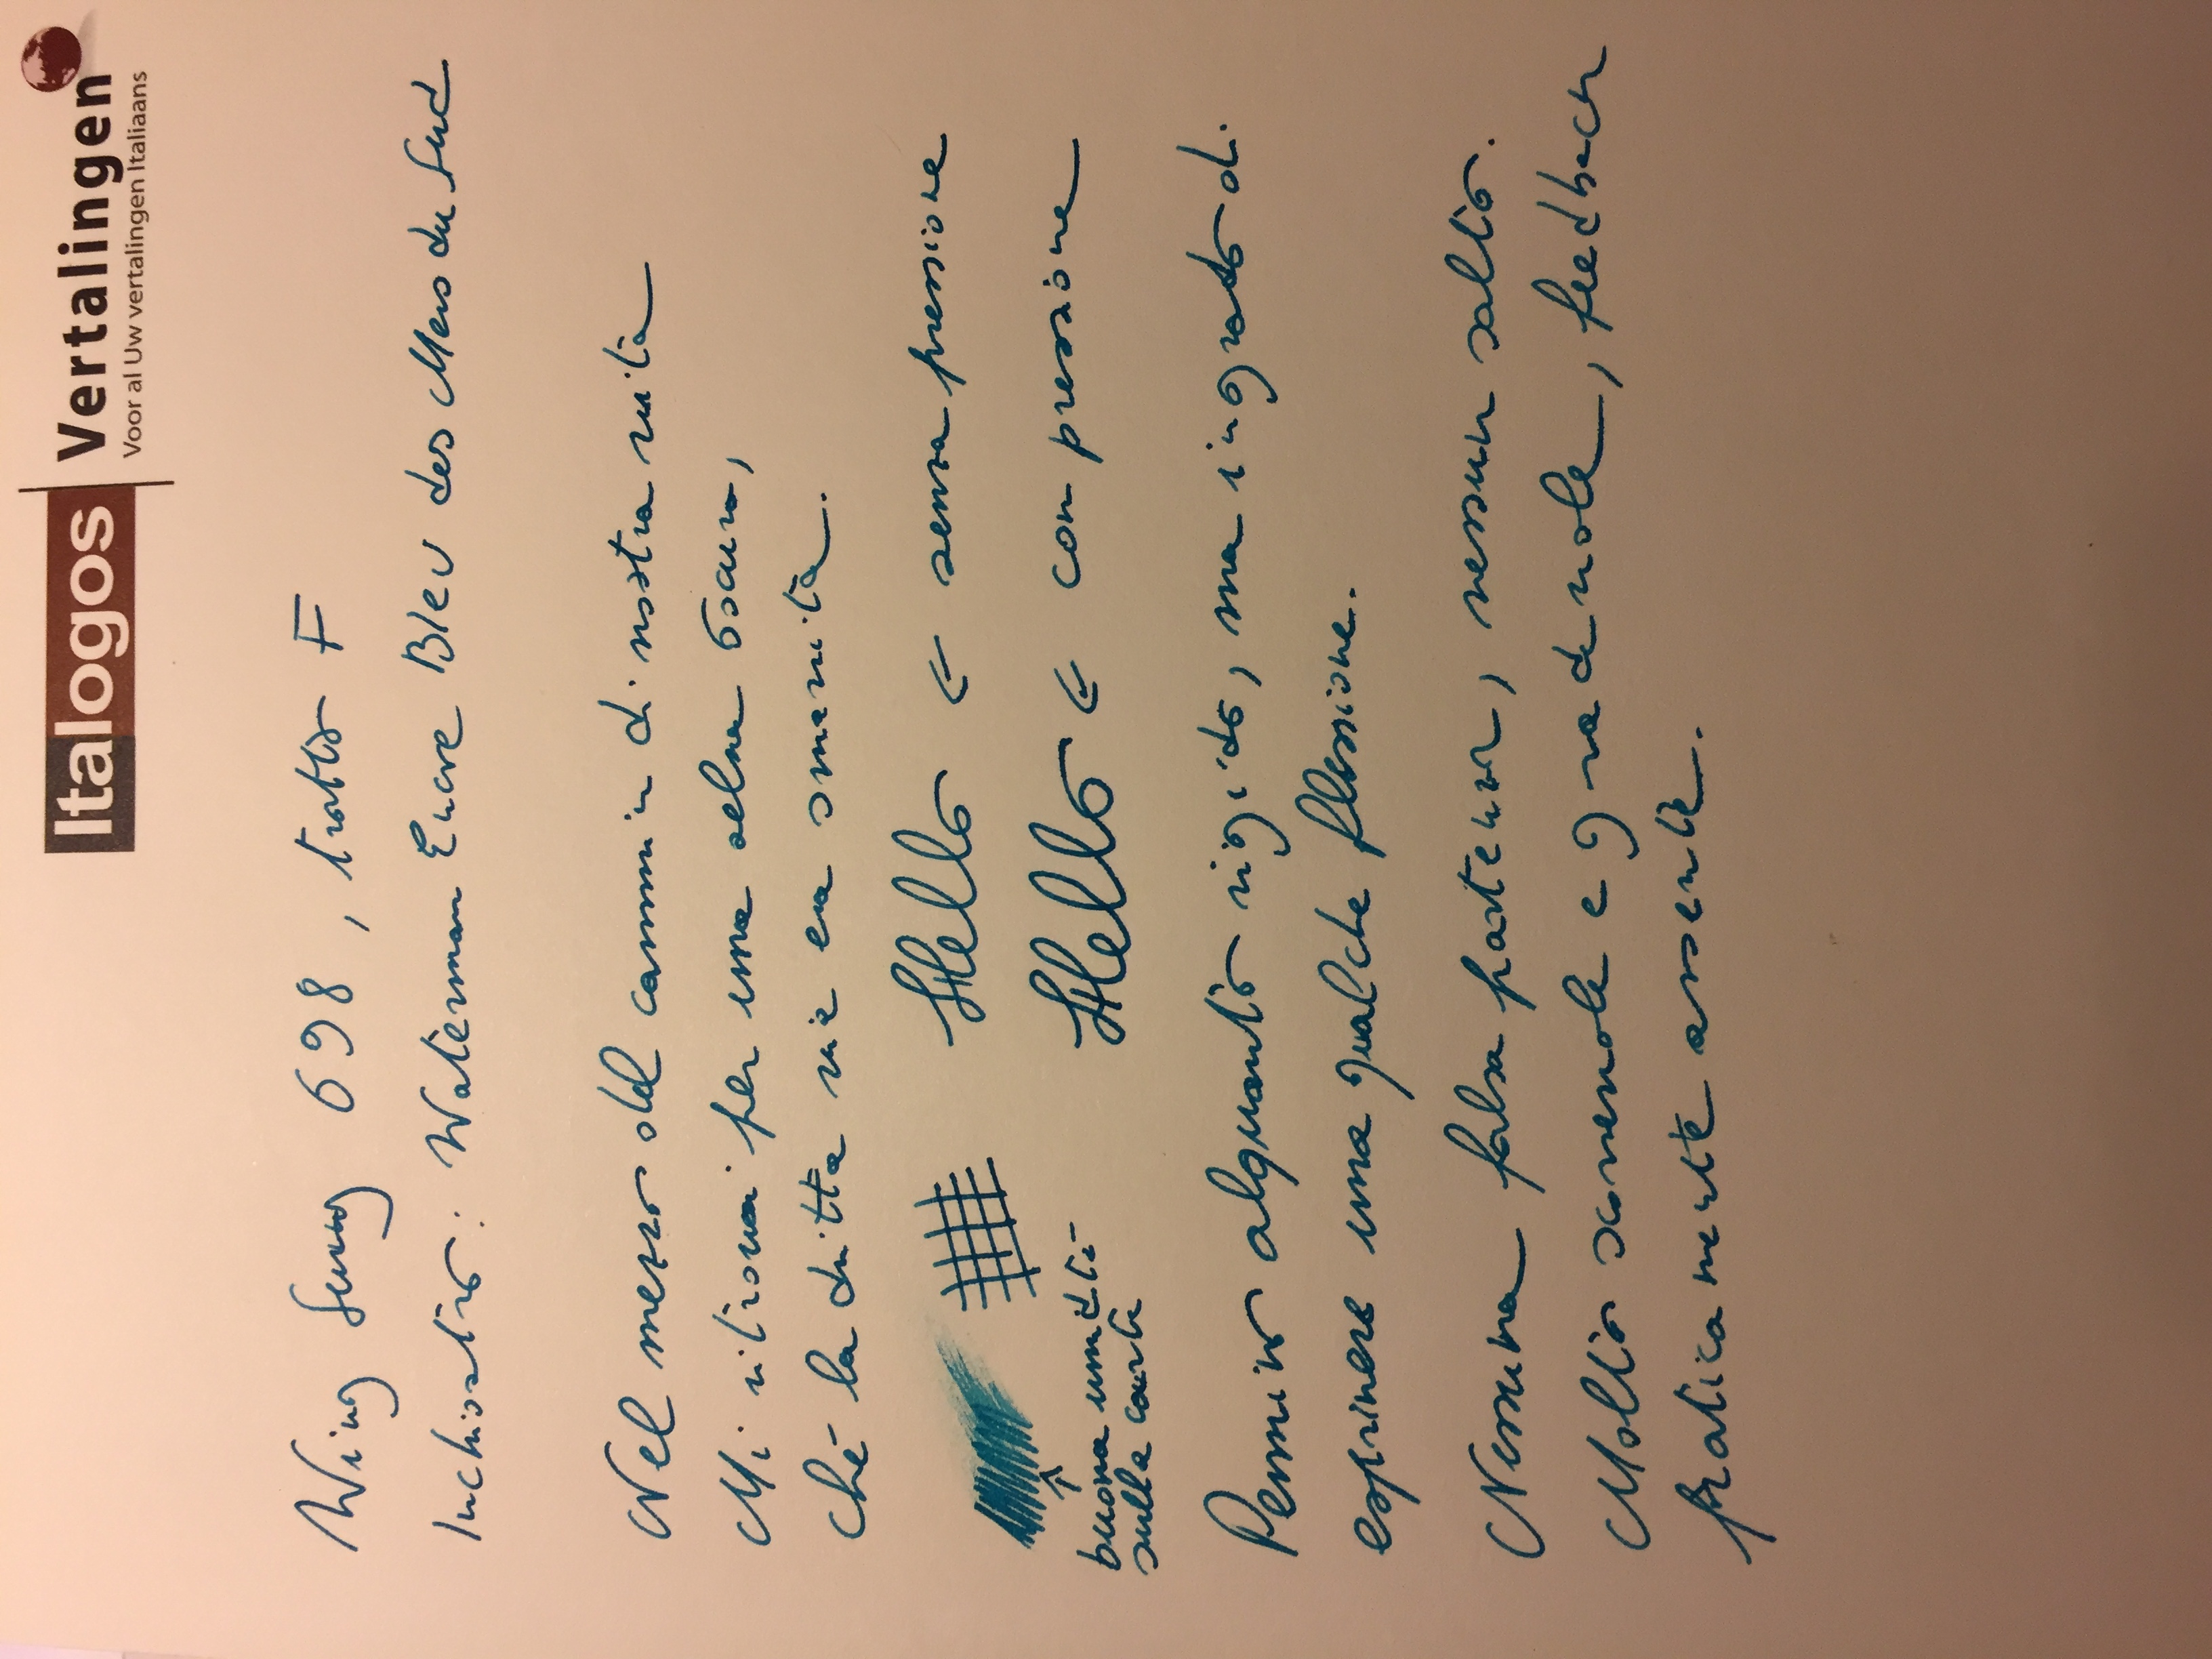 Italogos Vertalingen
Voor al Uw vertalingen Italiaans
Wing Sung 698, tratto F
Inchiostro: Waterman Encre Bleu des Mers du Sud
Nel mezzo del cammin di nostra vita
Mi ritrovai per una selva oscura,
Ché la diritta via era smarrita.
Hello ← senza pressione
Hello ← con pressione
↑
buona umidità
sulla carta
Pennino alquanto rigido, ma in grado di
esprimere una qualche flessione.
Nessuna falsa partenza, nessun salto.
Molto scorrevole e gradevole, feedback
praticamente assente.